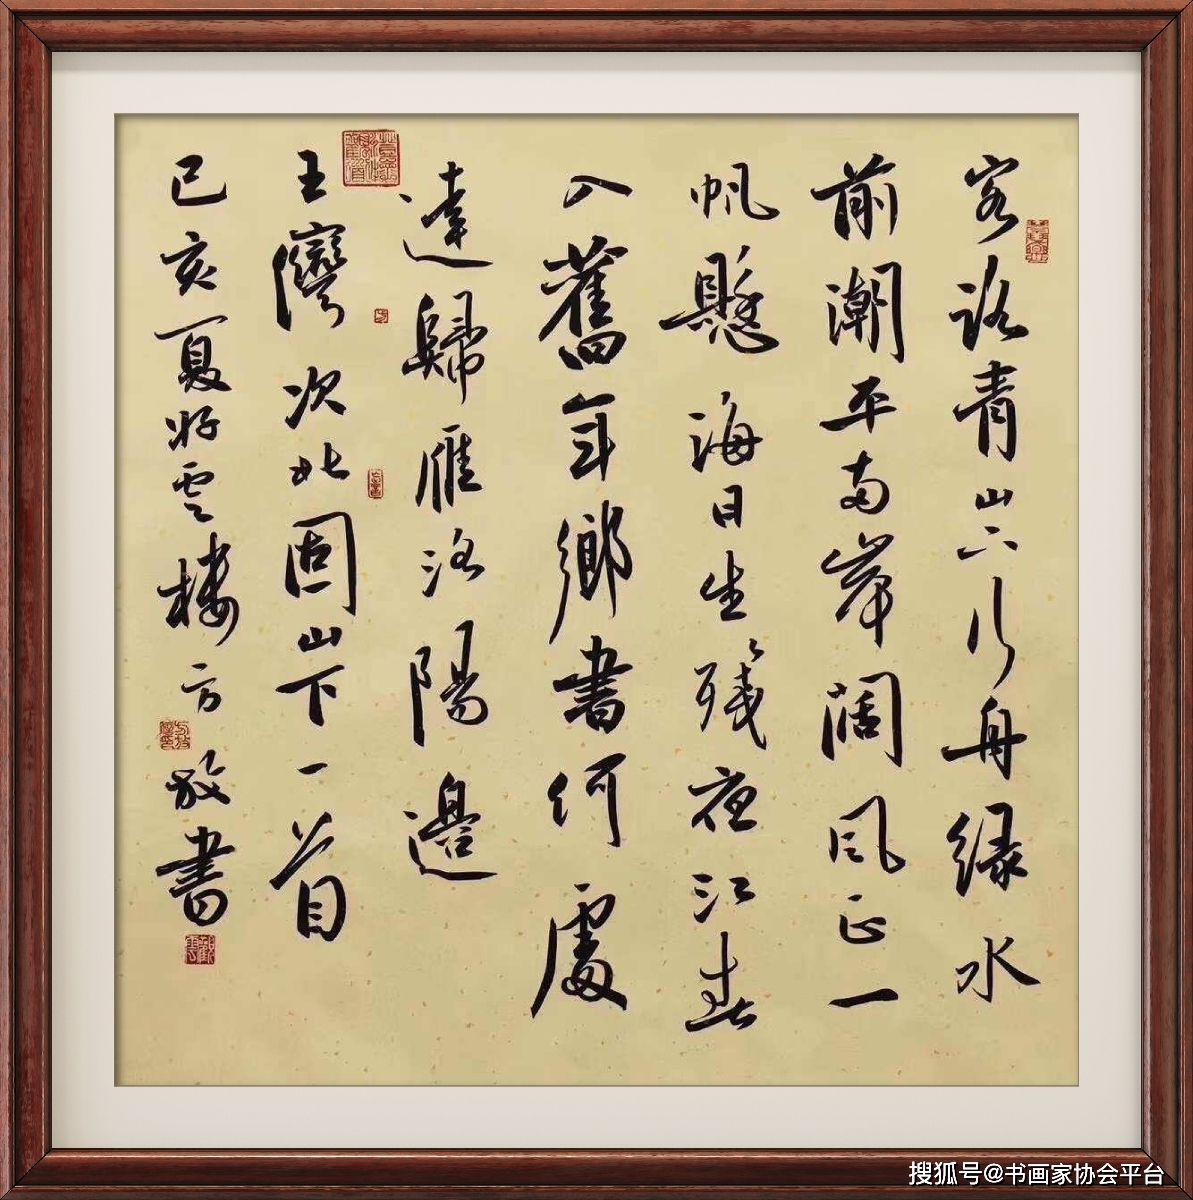 客路青山下行舟緑水
前潮平両岸闊風正一
帆懸海日生殘夜江春
入舊年鄉書何處
達歸雁洛陽邊
王灣次北固山下一首
己亥夏於雲樓方放書
搜狐号@书画家协会平台